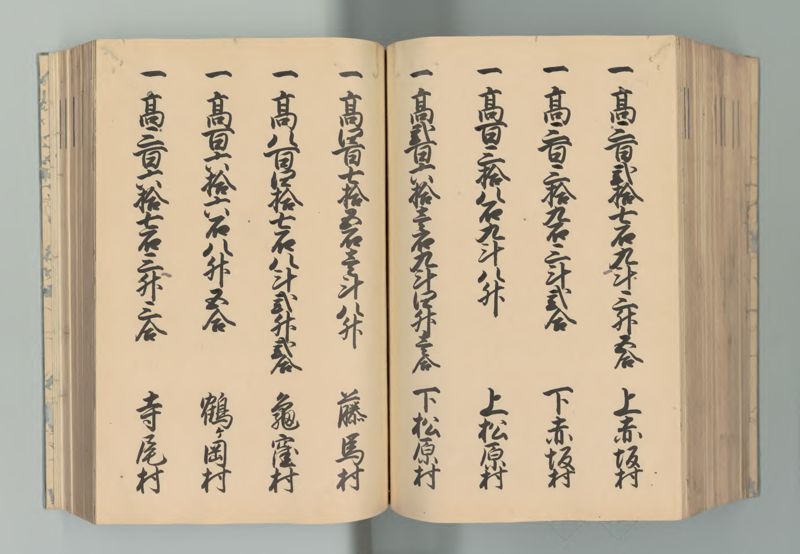 一 高三百弐拾七石九斗三升五合 上赤坂村
一 高三百三拾九石三斗弐合 下赤坂村
一 高百三拾八石九斗八升 上松原村
一 高弐百六拾壱石九斗四升三合 下松原村
一 高四百七拾五石壱斗八升 藤馬村
一 高八百四拾七石八斗弐升弐合 亀窪村
一 高百六拾六石八升五合 鶴ヶ岡村
一 高三百六拾七石三升三合 寺尾村